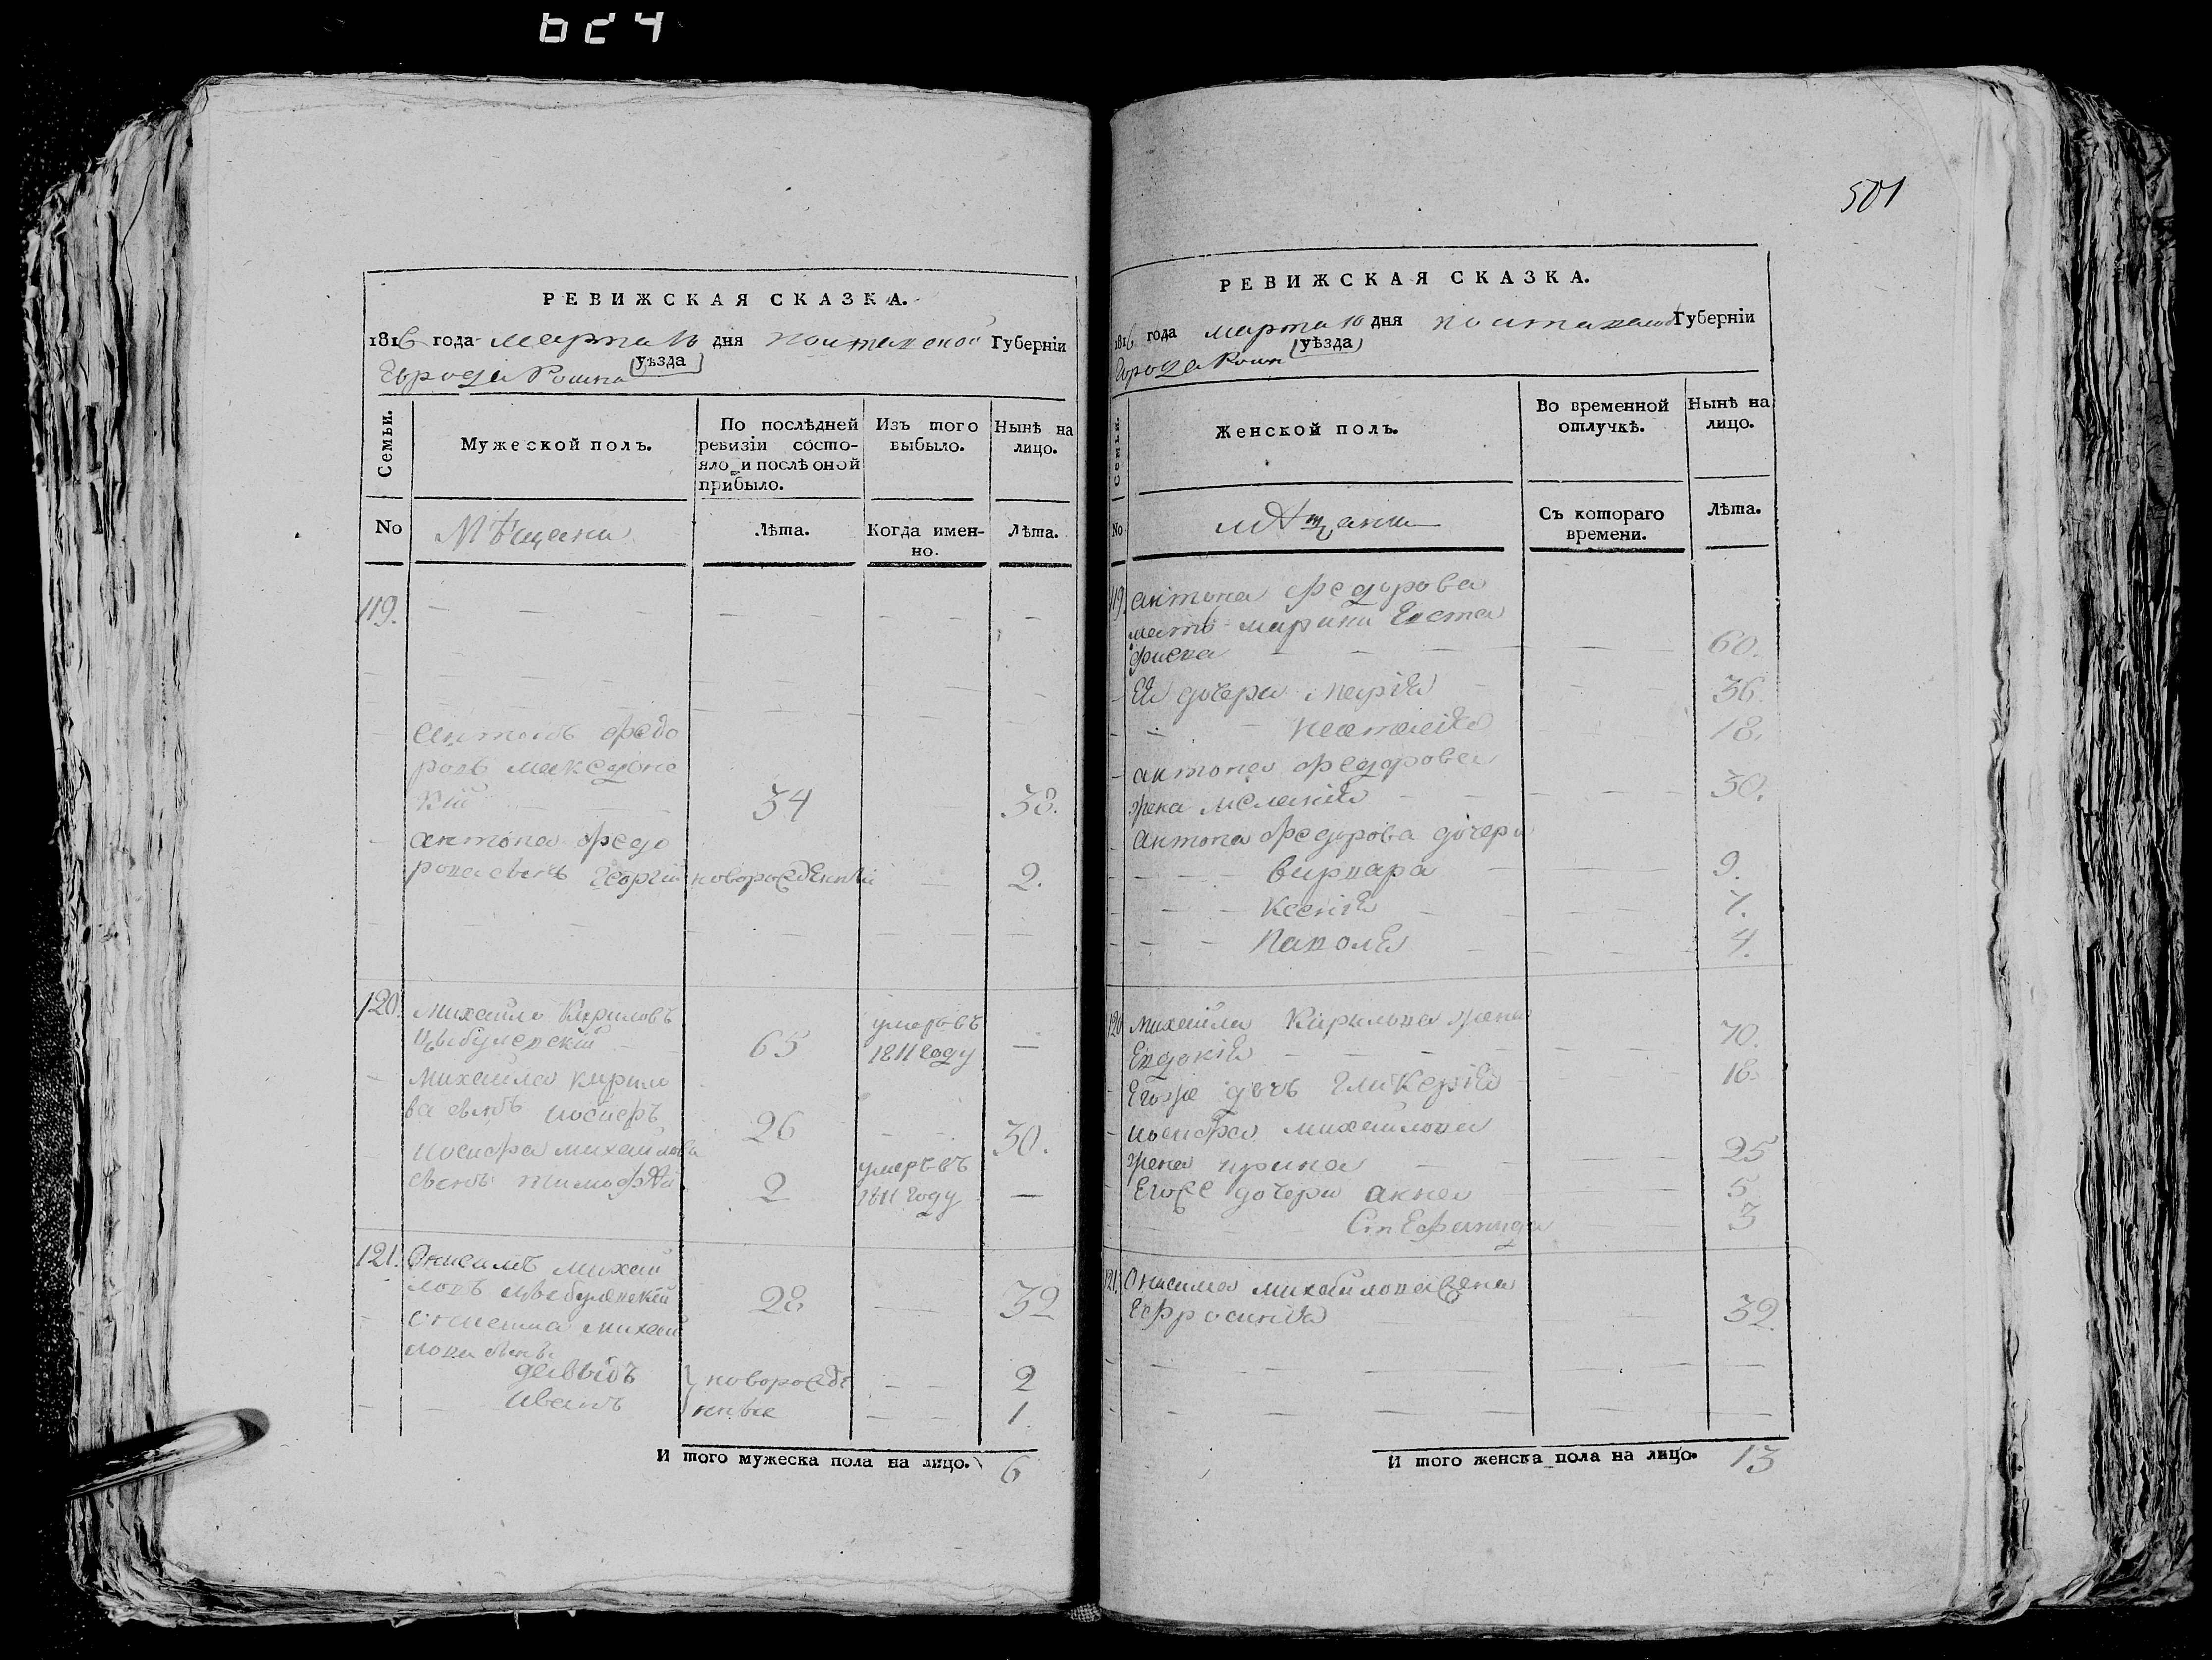 624
РЕВИЖСКАЯ СКАЗКА.
1816 года марта 10 дня Полтавской Губерніи
Города Ромна уѣзда
Семьи.
Мужеской полъ.
По послѣдней ревизіи состо-
яло и послѣ оной
прибыло.
Изъ того
выбыло.
Нынѣ на
лицо.
No
Мѣщани
Лѣта.
Когда имен-
но.
Лѣта.
119.
Антонъ Федо
ровъ Македонс
кій 34 38.
Антона Федо
рова сынъ Георгій новорожденній 2.
120. Михайло Кириловъ умеръ въ
Цыбулевскій 65 1811 году —
Михайла Кирило
ва сынъ Иосифъ 26 30.
Иосифа Михайлова умеръ въ
сынъ Тимофѣй 2 1811 году —
121. Онисимъ Михай
ловъ Цыбулевскій 28 32
Онисима Михай
лова сынъ
Давыдъ новорожде 2
Иванъ нные 1.
И того мужеска пола на лицо. 6
501
РЕВИЖСКАЯ СКАЗКА.
1816 года марта 10 дня Полтавской Губерніи
Города Ромн уѣзда
Семьи.
Женской полъ.
Во временной
отлучкѣ.
Нынѣ на
лицо.
No
мѣщани
Съ котораго
времени.
Лѣта.
119. Антона Федорова
мать Марина Евста
фиева 60.
Ея дочери Марія 36.
Наталія 18.
Антона Федорова
жена Меланія 30.
Антона Федорова дочери
Варвара 9.
Ксенія 7.
Паволя 4.
120 Михайла Кирилова жена
Евдокія 70.
Егоже дочь Гликерія 18.
Иосифа Михайлова
жена Ирина 25
Егоже дочери Анна 5
Стефанида 3
121. Онисима Михайлова жена
Ефросинія 32.
И того женска пола на лицо. 13